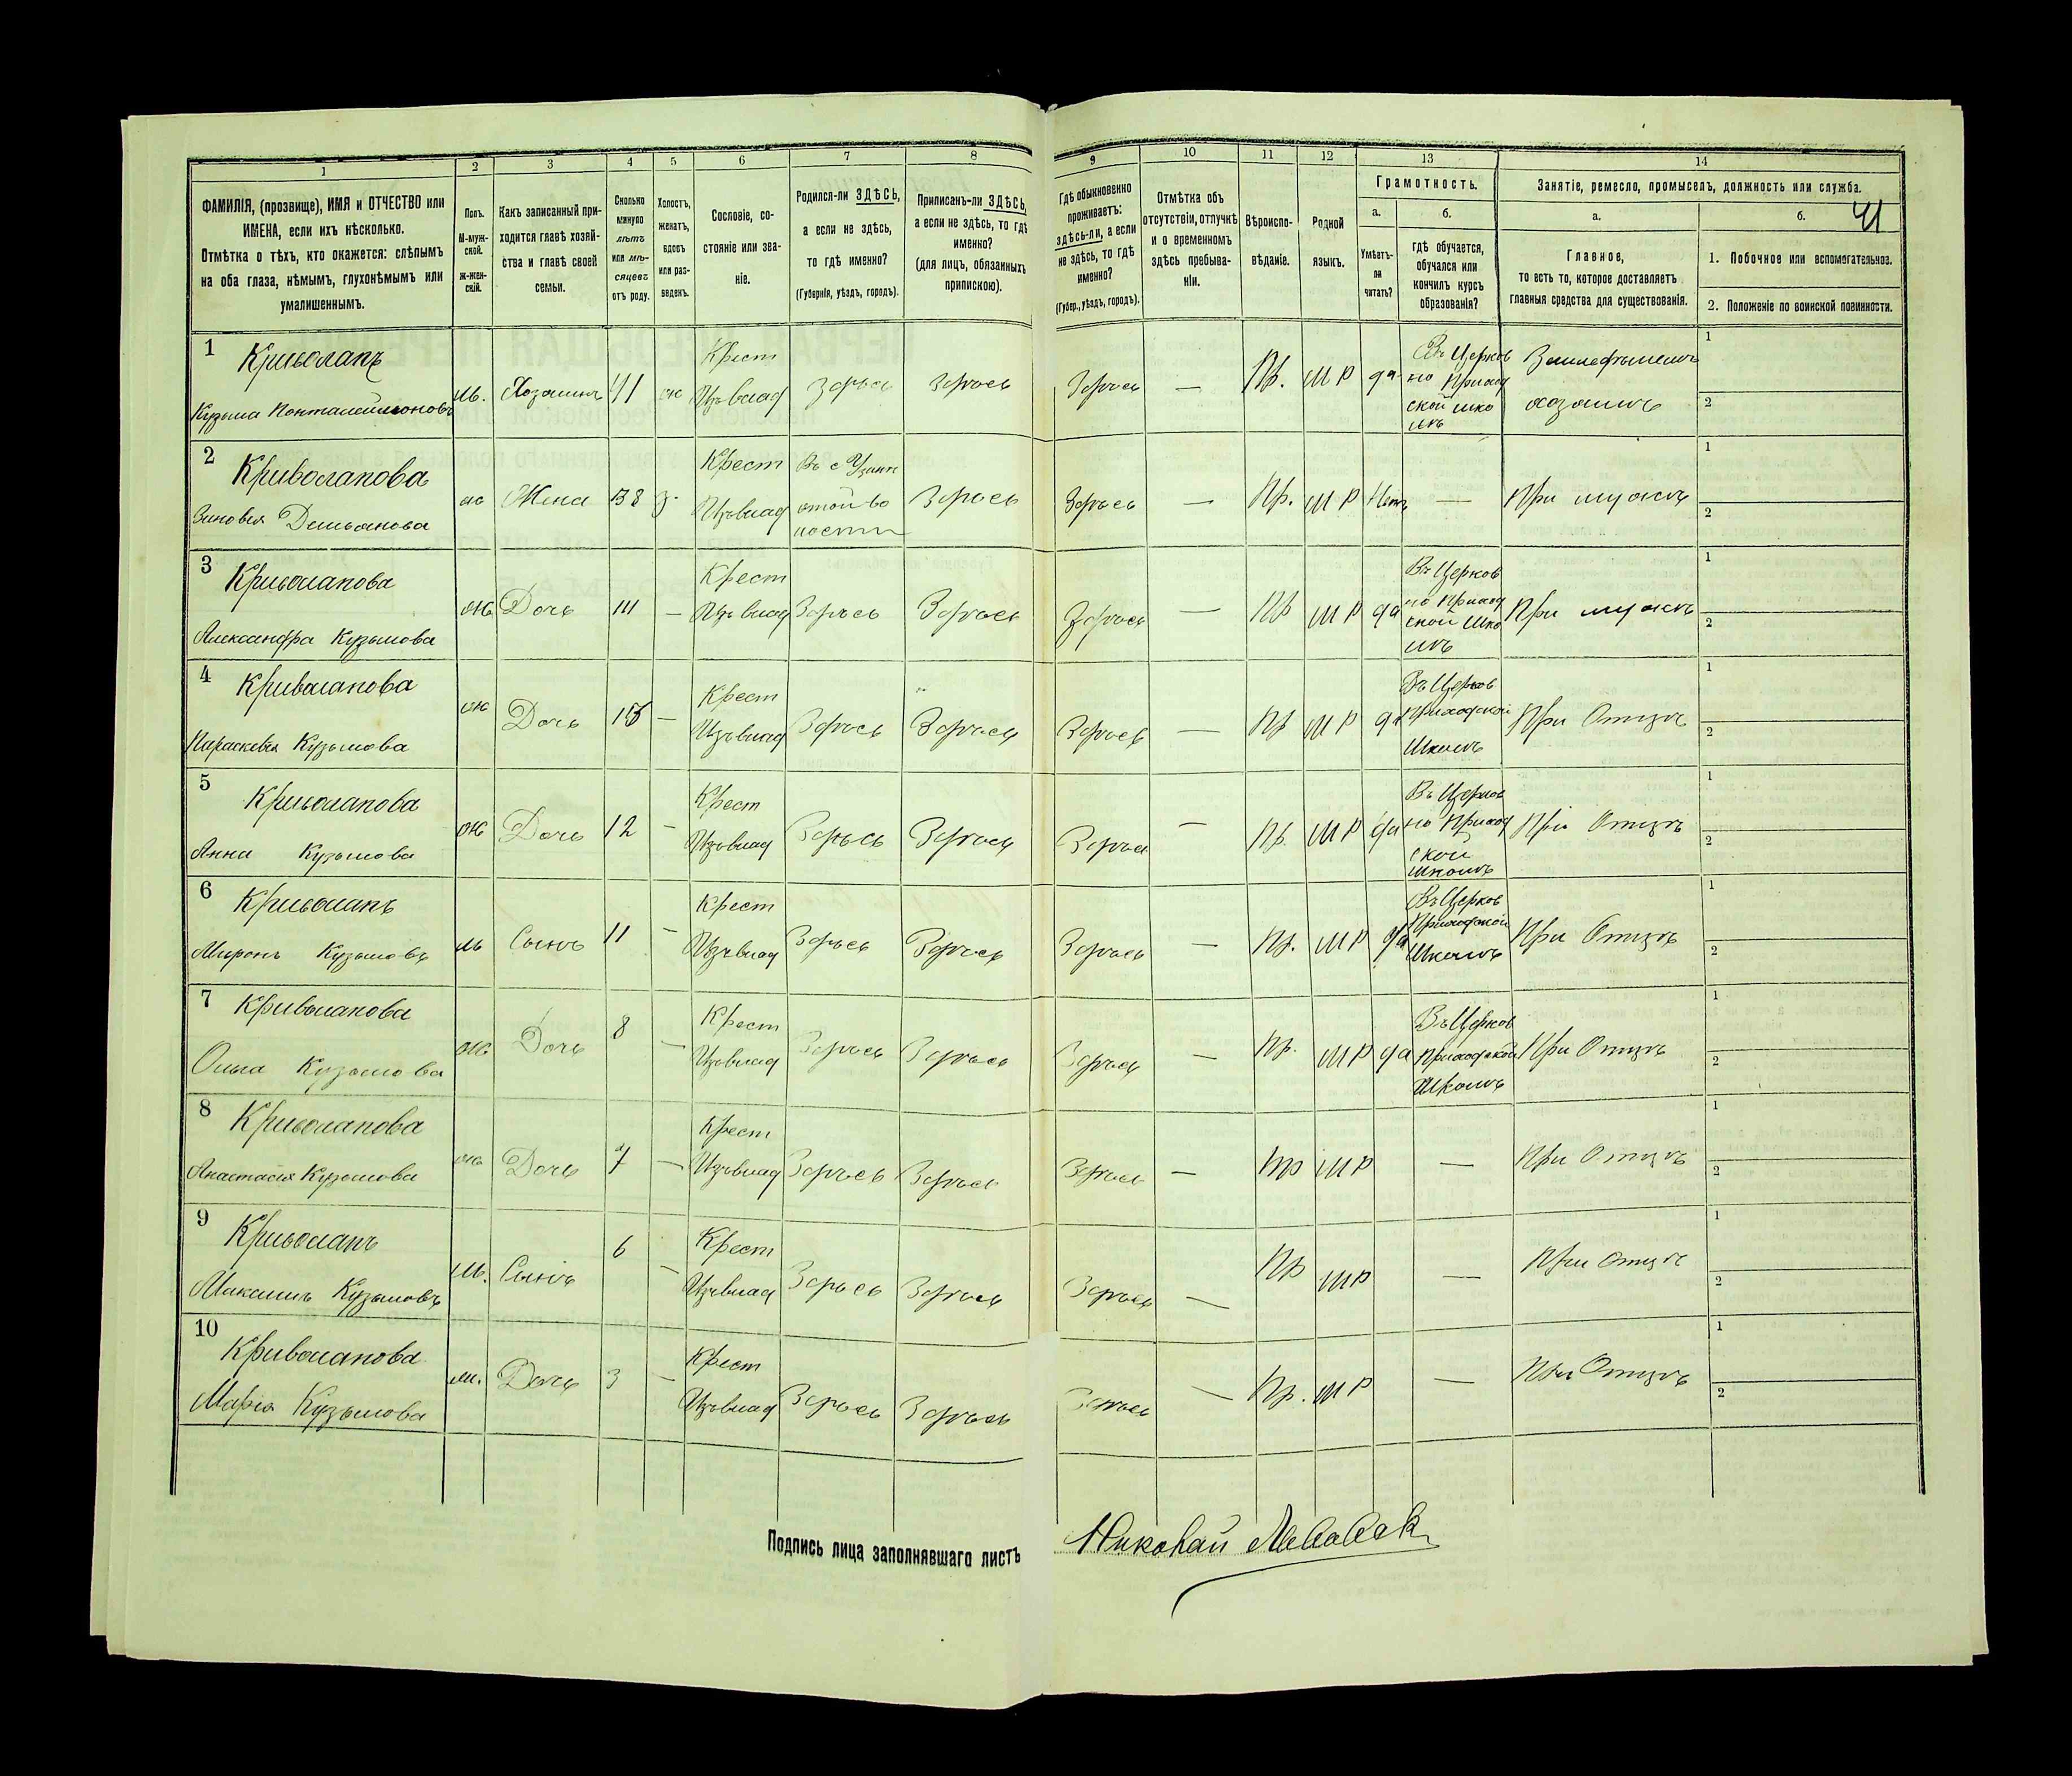 1 2 3 4 5 6 7 8 9 10 11 12 13 14
ФАМИЛІЯ, (прозвище), ИМЯ и ОТЧЕСТВО или
ИМЕНА, если ихъ нѣсколько.
Отмѣтка о тѣхъ, кто окажется: слѣпымъ
на оба глаза, нѣмымъ, глухонѣмымъ или
умалишеннымъ.
Полъ.
М-муж-
ской.
ж-жен-
скій.
Какъ записанный при-
ходится главѣ хозяй-
ства и главѣ своей
семьи.
Сколько
минуло
лѣтъ
или мѣ-
сяцевъ
отъ роду.
Холостъ,
женатъ,
вдовъ
или раз-
веденъ.
Сословіе, со-
стояніе или зва-
ніе.
Родился-ли ЗДѢСЬ,
а если не здѣсь,
то гдѣ именно?
(Губернія, уѣздъ, городъ).
Приписанъ-ли ЗДѢСЬ,
а если не здѣсь, то гдѣ
именно?
(для лицъ, обязанныхъ
припискою).
Гдѣ обыкновенно
проживаетъ:
здѣсь-ли, а если
не здѣсь, то гдѣ
именно?
(Губер., уѣздъ, городъ).
Отмѣтка объ
отсутствіи, отлучкѣ
и о временномъ
здѣсь пребыва-
ніи.
Вѣроиспо-
вѣданіе.
Родной
языкъ.
Грамотность.
а.
Умѣетъ-
ли
читать?
б.
гдѣ обучается,
обучался или
кончилъ курсъ
образованія?
Занятіе, ремесло, промыселъ, должность или служба.
а.
Главное,
то есть то, которое доставляетъ
главныя средства для существованія.
б.
41
1. Побочное или вспомогательное.
2. Положеніе по воинской повинности.
1 Криволапъ
Кузьма Понталеймоновъ
м. Хозяинъ 41 ж
Крест
Изъ влад
Здѣсь Здѣсь Здѣсь — Пр. М Р да
Въ Церков
но Приход
ской шко
лѣ
Земледѣлецъ
хозяинъ
1
2
2 Криволапова
Зиновья Демьянова
ж Жена 38 з.
Крест
Изъ влад
Здѣсь Здѣсь — Пр. М Р Нетъ — При мужѣ
1
2
3 Криволапова
Александра Кузьмова
ж Дочь —
Крест
Изъ влад
Здѣсь Здѣсь Здѣсь — Пр М Р да
Въ Церков
но Приход
ской Шко
лѣ
При мужѣ
1
2
4 Криволапова
Параскевья Кузьмова
ж Дочь —
Крест
Изъ влад
Здѣсь Здѣсь Здѣсь — Пр М Р да
Въ Церков
Приходской
Школѣ
При Отцѣ
1
2
5 Криволапова
Анна Кузьмова
ж Дочь 12 —
Крест
Изъ влад
Здѣсь Здѣсь Здѣсь — Пр. М Р да
Въ Церков
но Приход
ской
Школѣ
При Отцѣ
1
2
6 Криволапъ
Миронъ Кузьмовъ
м Сынъ 11 —
Крест
Изъ влад
Здѣсь Здѣсь Здѣсь — Пр. М Р да
Въ Церков
Приходской
Школѣ
При Отцѣ
1
2
7 Криволапова
Ольга Кузьмова
ж Дочь 8 —
Крест
Изъ влад
Здѣсь Здѣсь Здѣсь — Пр. М Р да
Въ Церков
Приходской
Школѣ
При Отцѣ
1
2
8 Криволапова
Анастасія Кузьмова
ж Дочь 7 —
Крест
Изъ влад
Здѣсь Здѣсь Здѣсь — Пр М Р — При Отцѣ
1
2
9 Криволапъ
Максимъ Кузьмовъ
м. Сынъ 6 —
Крест
Изъ влад
Здѣсь Здѣсь Здѣсь — Пр М Р — При Отцѣ
1
2
10 Криволапова
Марія Кузьмова
м. Дочь 3 —
Крест
Изъ влад
Здѣсь Здѣсь Здѣсь — Пр. М Р — При Отцѣ
1
2
Подпись лица заполнявшаго листъ Николай